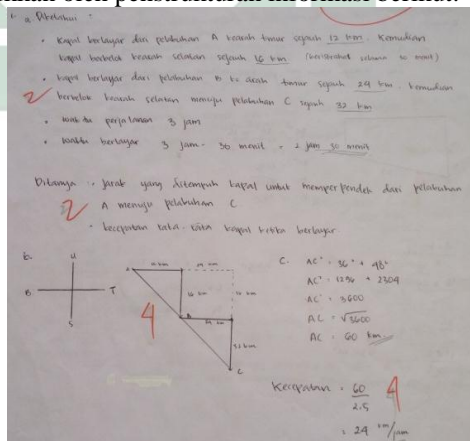 1. a. Diketahui :
• Kapal berlayar dari pelabuhan A kearah timur sejauh 12 km. Kemudian
kapal berbelok kearah selatan sejauh 16 km (beristirahat selama 30 menit)
• kapal berlayar dari pelabuhan B ke arah timur sejauh 24 km. kemudian
2 berbelok kearah selatan menuju pelabuhan C sejauh 32 km.
• waktu perjalanan 3 jam
• waktu berlayar 3 jam - 30 menit = 2 jam 30 menit
Ditanya : • jarak yang ditempuh kapal untuk memperpendek dari pelabuhan
2 A menuju pelabuhan C
• kecepatan rata-rata kapal ketika berlayar
b.
U
B T
S
A
12 km
24 km
16 km
B
24 km
32 km
C
4
C. AC² = 36² + 48²
AC² = 1296 + 2304
AC² = 3600
AC = √3600
AC = 60 km
Kecepatan = 60
2.5
4
= 24 km/jam